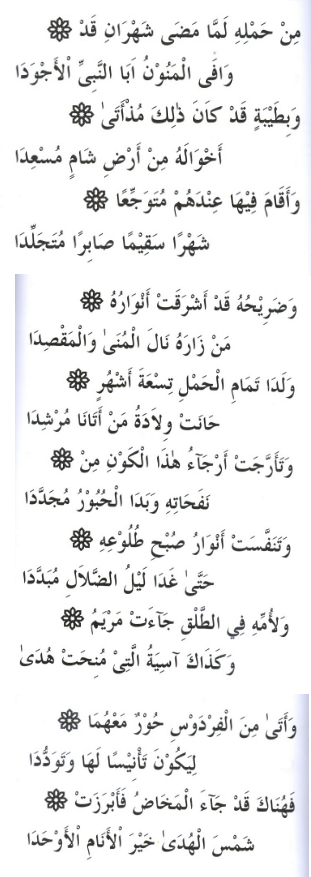 مِنْ حَمْلِهِ لَمَّا مَضَى شَهْرَانِ قَدْ ❁
وَافَى الْمَنُوْنُ اَبَا النَّبِيِّ اْلأَجْوَدَا
وَبِطَيْبَةٍ قَدْ كَانَ ذٰلِكَ مُذْأَتَىٰ ❁
أَخْوَالَهُ مِنْ أَرْضِ شَامٍ مُسْعِدَا
وَأَقَامَ فِيْهَا عِنْدَهُمْ مُتَوَجِّعًا ❁
شَهْرًا سَقِيْمًا صَابِرًا مُتَجَلِّدَا
وَضَرِيْحُهُ قَدْ أَشْرَقَتْ أَنْوَارُهُ ❁
مَنْ زَارَهُ نَالَ الْمُنَىٰ وَالْمَقْصِدَا
وَلَدَا تَمَامِ الْحَمْلِ تِسْعَةَ أَشْهُرٍ ❁
حَانَتْ وِلاَدَةُ مَنْ أَتَانَا مُرْشِدَا
وَتَأَرَّجَتْ أَرْجَآءُ هٰذَا الْكَوْنِ مِنْ ❁
نَفَحَاتِهِ وَبَدَا الْحُبُوْرُ مُجَدَّدَا
وَتَنَفَّسَتْ أَنْوَارُ صُبْحِ طُلُوْعِهِ ❁
حَتَّىٰ غَدَا لَيْلُ الضَّلاَلِ مُبَدَّدَا
وَلأُمِّهِ فِي الطَّلْقِ جَآءَتْ مَرْيَمُ ❁
وَكَذَاكَ آسِيَةُ الَّتِيْ مُنِحَتْ هُدَىٰ
وَأَتَىٰ مِنَ الْفِرْدَوْسِ حُوْرٌ مَعْهُمَا ❁
لِيَكُوْنَ تَأْنِيْسًا لَهَا وَتَوَدُّدَا
فَهُنَاكَ قَدْ جَآءَ الْمَخَاضُ فَأَبْرَزَتْ ❁
شَمْسَ الْهُدَىٰ خَيْرَ اْلأَنَامِ اْلأَوْحَدَا